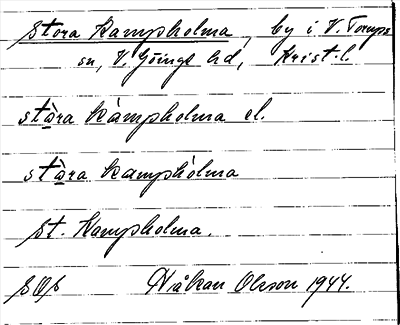 Stora Kampholma, by i V. Torups
sn, V. Göinge hd, Krist. l.
stàra kàmpholma el.
stàra kamphólma
St. Kampholma.
SOS Håkan Olsson 1944.